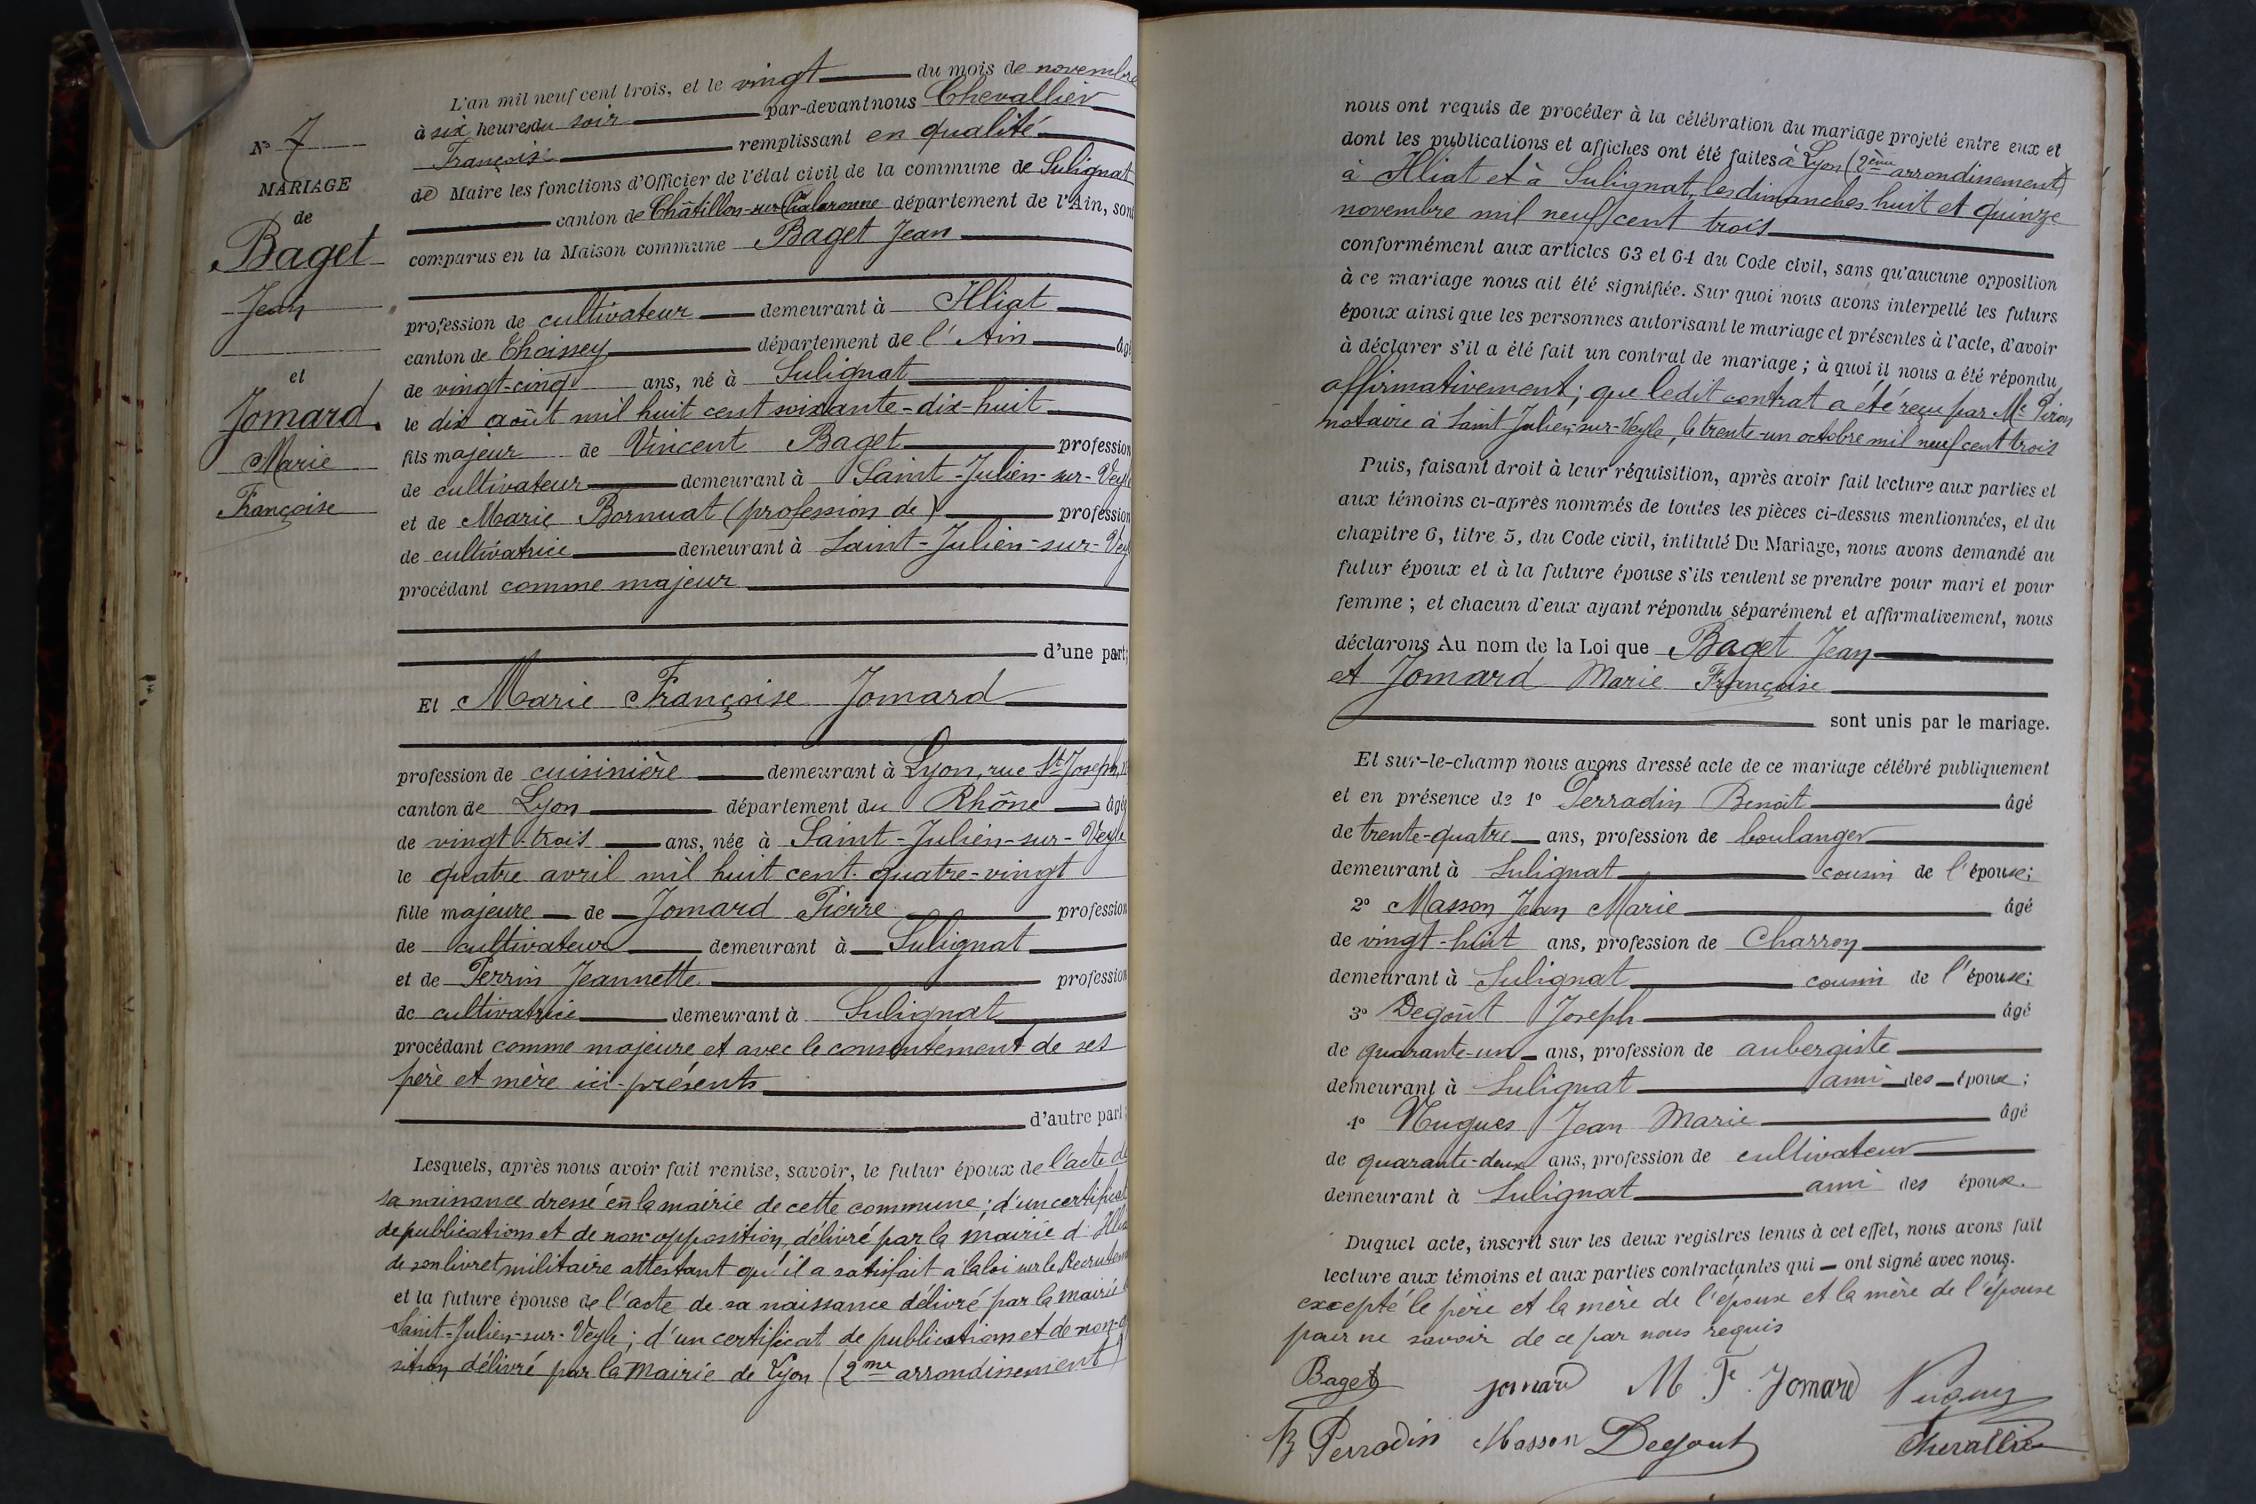 N° 7
MARIAGE
de
Baget
Jean
et
Jomard
Marie
Françoise
L'an mil neuf cent trois, et le vingt du mois de novembre
à six heures du soir par-devant nous Chevallier
François remplissant en qualité
de Maire les fonctions d'Officier de l'état civil de la commune de Sulignat
canton de Châtillon-sur-Chalaronne département de l'Ain, sont
comparus en la Maison commune Baget Jean
profession de cultivateur demeurant à Illiat
canton de Thoissey département de l'Ain âgé
de vingt-cinq ans, né à Sulignat
le dix août mil huit cent soixante-dix-huit
fils majeur de Vincent Baget profession
de cultivateur demeurant à Saint-Julien-sur-Veyle
et de Marie Bornuat (profession de) profession
de cultivatrice demeurant à Saint-Julien-sur-Veyle
procédant comme majeur
d'une part;
Et Marie Françoise Jomard
profession de cuisinière demeurant à Lyon, rue St Joseph,
canton de Lyon département du Rhône âgée
de vingt-trois ans, née à Saint-Julien-sur-Veyle
le quatre avril mil huit cent quatre-vingt
fille majeure de Jomard Pierre profession
de cultivateur demeurant à Sulignat
et de Perrin Jeannette profession
de cultivatrice demeurant à Sulignat
procédant comme majeure et avec le consentement de ses
père et mère ici-présents
d'autre part;
Lesquels, après nous avoir fait remise, savoir, le futur époux de l'acte de
sa naissance dressé en la mairie de cette commune; d'un certificat
de publications et de non opposition, délivré par la mairie d'Illiat
de son livret militaire attestant qu'il a satisfait à la loi sur le Recrutement
et la future épouse de l'acte de sa naissance délivré par la mairie
Saint-Julien-sur-Veyle; d'un certificat de publications et de non-
sition délivré par la Mairie de Lyon (2me arrondissement)
nous ont requis de procéder à la célébration du mariage projeté entre eux et
dont les publications et affiches ont été faites à Lyon (2ème arrondissement)
à Illiat et à Sulignat, les dimanches huit et quinze
novembre mil neuf cent trois
conformément aux articles 63 et 64 du Code civil, sans qu'aucune opposition
à ce mariage nous ait été signifiée. Sur quoi nous avons interpellé les futurs
époux ainsi que les personnes autorisant le mariage et présentes à l'acte, d'avoir
à déclarer s'il a été fait un contrat de mariage; à quoi il nous a été répondu
affirmativement; que ledit contrat a été reçu par Me
notaire à Saint Julien-sur-Veyle, le trente-un octobre mil neuf cent trois
Puis, faisant droit à leur réquisition, après avoir fait lecture aux parties et
aux témoins ci-après nommés de toutes les pièces ci-dessus mentionnées, et du
chapitre 6, titre 5, du Code civil, intitulé Du Mariage, nous avons demandé au
futur époux et à la future épouse s'ils veulent se prendre pour mari et pour
femme; et chacun d'eux ayant répondu séparément et affirmativement, nous
déclarons Au nom de la Loi que Baget Jean
et Jomard Marie Françoise
sont unis par le mariage.
Et sur-le-champ nous avons dressé acte de ce mariage célébré publiquement
et en présence de 1° Perradin Benoît âgé
de trente-quatre ans, profession de boulanger
demeurant à Sulignat cousin de l'épouse;
2° Masson Jean Marie âgé
de vingt-huit ans, profession de Charron
demeurant à Sulignat cousin de l'épouse;
3° Degoût Joseph âgé
de quarante-un ans, profession de aubergiste
demeurant à Sulignat ami des époux;
4° Nugues Jean Marie âgé
de quarante-deux ans, profession de cultivateur
demeurant à Sulignat ami des époux.
Duquel acte, inscrit sur les deux registres tenus à cet effet, nous avons fait
lecture aux témoins et aux parties contractantes qui ont signé avec nous.
excepté le père et la mère de l'époux et la mère de l'épouse
pour ne savoir de ce par nous requis
Baget Jomard M Fe Jomard Nugues
B Perradin Masson Degout Chevallier